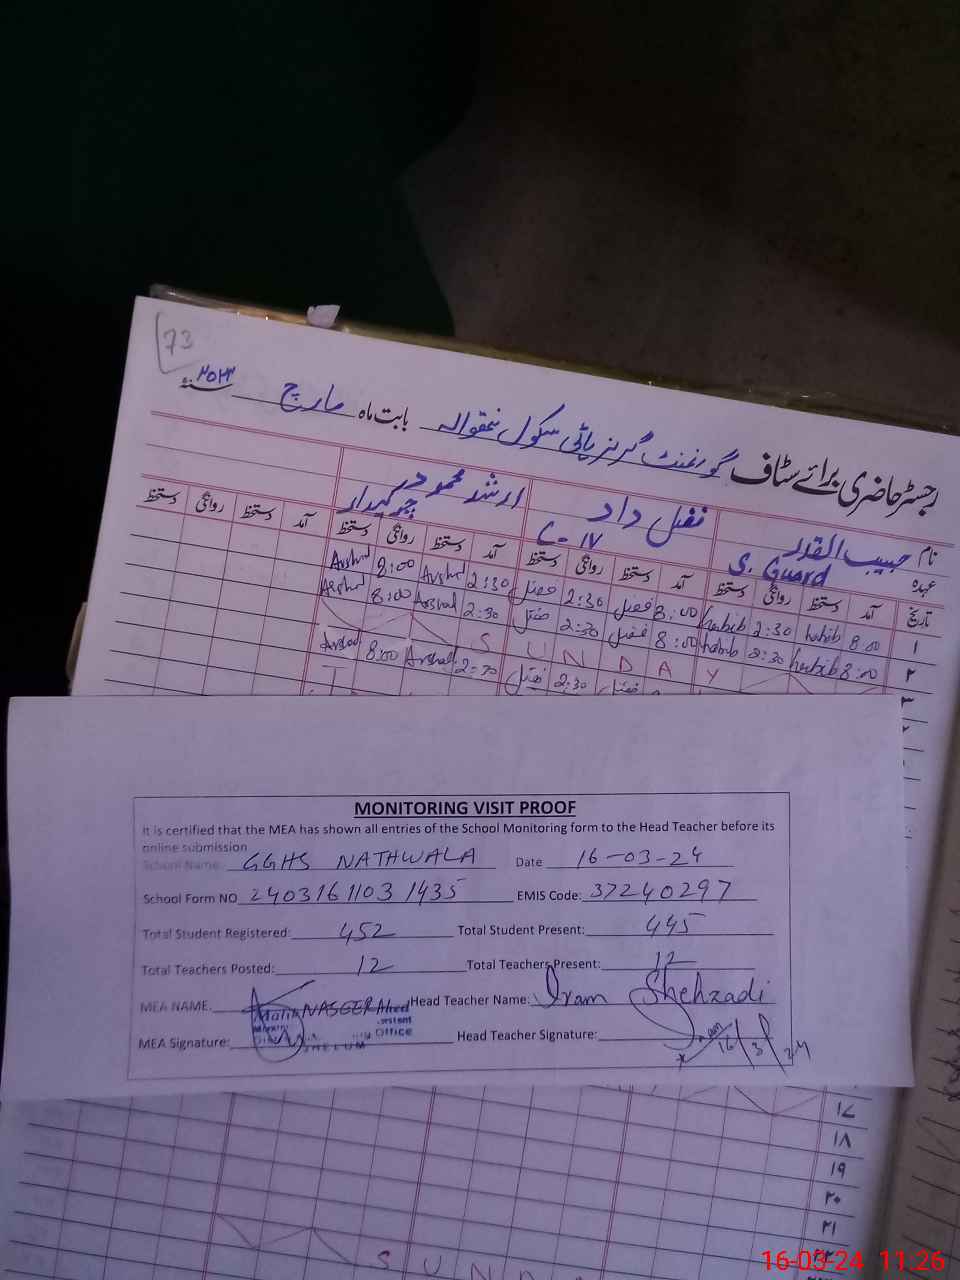 73
رجسٹر حاضری برائے سٹاف گورنمنٹ گرلز ہائی سکول نتھوالہ بابت ماہ مارچ ۲۰۲۴
نام حبیب القدر فضل داد ارشد محمود
عہدہ S. Guard C-IV چوکیدار
تاریخ آمد دستخط روانگی دستخط آمد دستخط روانگی دستخط آمد دستخط روانگی دستخط آمد دستخط روانگی دستخط
۱ 8:00 habib 2:30 habib 8:00 فضل 2:30 فضل 2:30 Arshad 8:00 Arshad
۲ 8:00 habib 2:30 habib 8:00 فضل 2:30 فضل 2:30 Arshad 8:00 Arshad
۳ SUNDAY
فضل 2:30 فضل 2:30 Arshad 8:00 Arshad
MONITORING VISIT PROOF
It is certified that the MEA has shown all entries of the School Monitoring form to the Head Teacher before its
online submission
School Name: GGHS NATHWALA Date 16-03-24
School Form NO 24031611031435 EMIS Code: 37240297
Total Student Registered: 452 Total Student Present: 445
Total Teachers Posted: 12 Total Teachers Present: 12
MEA NAME: Malik NASEER Ahmed Head Teacher Name: Iram Shehzadi
MEA Signature: Office JHELUM Head Teacher Signature: Iram 16/3/24
۱۷
۱۸
۱۹
۲۰
۲۱
SUND
16-03-24 11:26